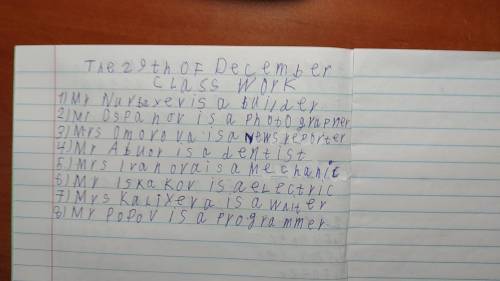 The 29th OF December
CLASS WORK
1) Mr Nurbexev is a builder
2) Mr Ospanov is a photographer
3) Mrs Omarova is a Newsreporter
4) Mr Abuov is a dentist
5) Mrs Ivanova is a Mechanic
6) Mr Iskakov is a electric
7) Mrs Kalixeva is a waiter
8) Mr Popov is a programmer